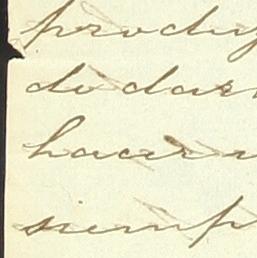 produj
do dar
hacer
siemp